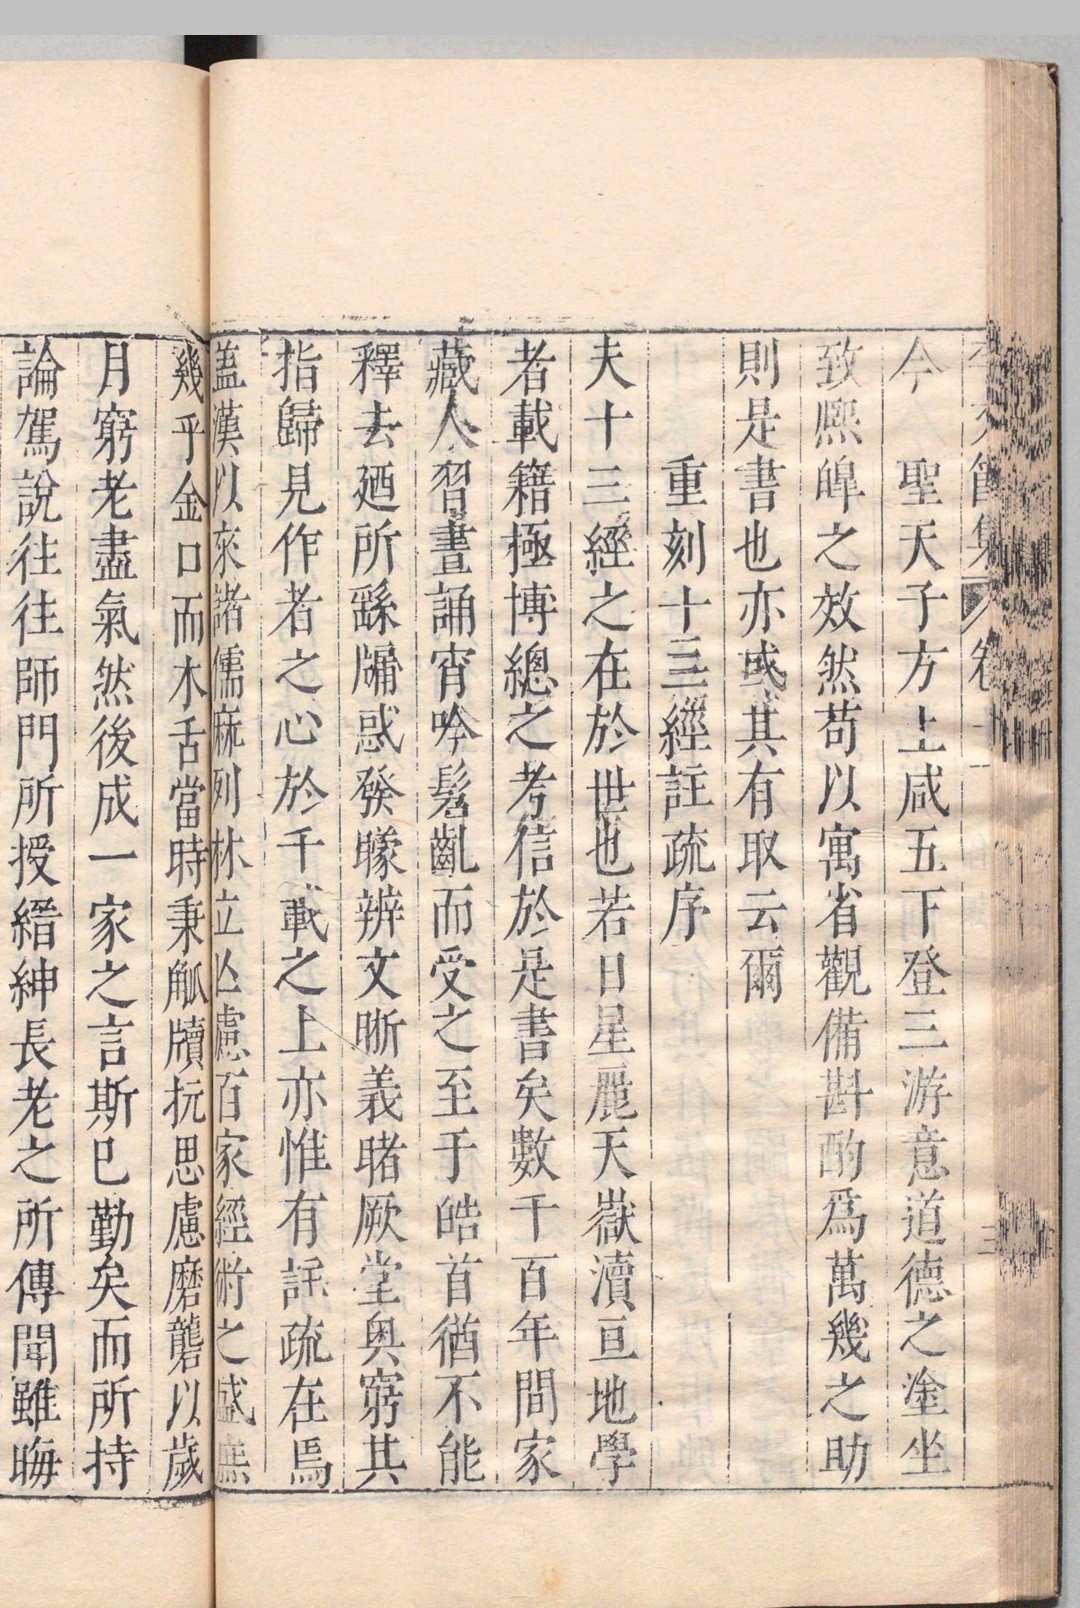 今　聖天子方上咸五下登三游意道德之塗坐
致熈皥之效然苟以寓省觀備斟酌爲萬幾之助
則是書也亦或其有取云爾
重刻十三經註疏序
夫十三經之在於世也若日星麗天嶽瀆亘地學
者載籍極博總之考信於是書矣數千百年間家
藏人習晝誦宵吟髫齓而受之至于皓首猶不能
釋去廼所繇牖惑發矇辨文晰義睹厥堂奥窮其
指歸見作者之心於千載之上亦惟有註疏在焉
盖漢以來諸儒麻列林立亾慮百家經術之盛
幾乎金口而木舌當時秉觚牘抏思慮磨礱以歲
月窮老盡氣然後成一家之言斯已勤矣而所持
論駕說往往師門所授縉紳長老之所傳聞雖晦